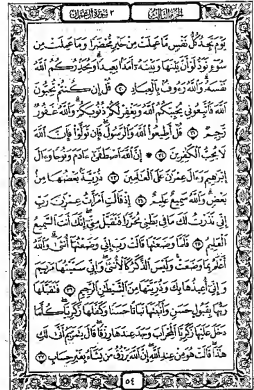 الجزء الثالث ٣ سورة آل عمران
يوم تجد كل نفس ما عملت من خير محضرا وما عملت من
سوء تود لو أن بينها وبينه أمدا بعيدا ويحذركم الله
نفسه والله رءوف بالعباد ٣٠ قل إن كنتم تحبون
الله فاتبعوني يحببكم الله ويغفر لكم ذنوبكم والله غفور
رحيم ٣١ قل أطيعوا الله والرسول فإن تولوا فإن الله
لا يحب الكفرين ٣٢ إن الله اصطفى ءادم ونوحا وءال
إبرهيم وءال عمرن على العلمين ٣٣ ذرية بعضها من
بعض والله سميع عليم ٣٤ إذ قالت امرأت عمرن رب
إني نذرت لك ما في بطني محررا فتقبل مني إنك أنت السميع
العليم ٣٥ فلما وضعتها قالت رب إني وضعتها أنثى والله
أعلم بما وضعت وليس الذكر كالأنثى وإني سميتها مريم
وإني أعيذها بك وذريتها من الشيطن الرجيم ٣٦ فتقبلها
ربها بقبول حسن وأنبتها نباتا حسنا وكفلها زكريا كلما
دخل عليها زكريا المحراب وجد عندها رزقا قال يمريم أنى لك
هذا قالت هو من عند الله إن الله يرزق من يشاء بغير حساب ٣٧
٥٤